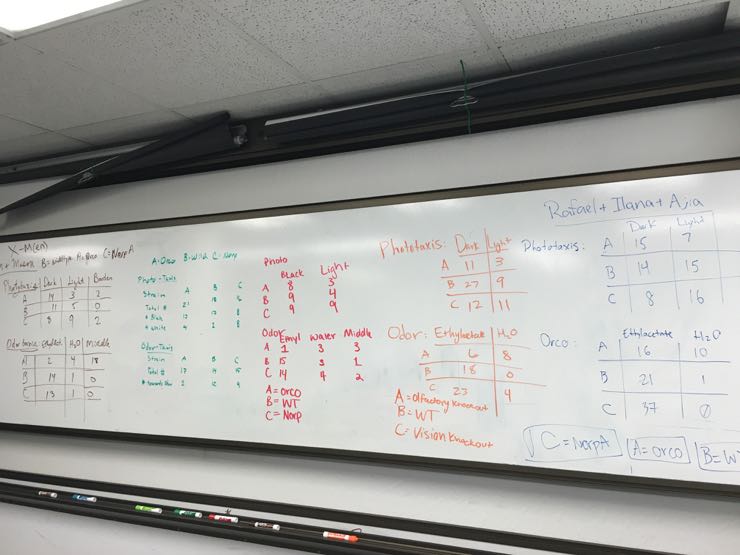 X-M(en)
B= Wildtype A=Orco C=NorpA
Phototaxis Dark Light Border
A 14 3 2
B 11 5 0
C 8 9 2
Odor Ethylacet H₂O Middle
A 2 4 18
B 14 1 0
C 13 1 0
A=Orco B=Wild C=Norp
Photo-Taxis
Strain A B C
Total # 21 18 16
4 2 8
Odor-Taxis
Strain A B C
Total # 17 14 15
Photo
Black Light
A 8 3
B 9 4
C 9 9
Odor Emyl water Middle
A 1 3 3
B 15 3 1
C 14 4 2
A=orco
B=WT
C=Norp
Phototaxis: Dark Light
A 11 3
B 27 9
C 12 11
Odor: Ethylacetate H₂O
A 6 8
B 18 0
C 23 4
A=Olfactory Knockout
B=WT
C=Vision Knockout
Rafael + Ilana + Ajia
Phototaxis: Dark Light
A 15 7
B 14 15
C 8 16
Orco: Ethylacetate H₂O
A 16 10
B 21 1
C 37 0
C=NorpA A=orco B=WT